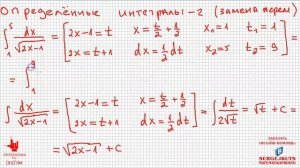 Определённые интегралы-2 (замена перем)
∫₁⁵ dx/√(2x-1) = [2x-1=t x=t/2+1/2 x₁=1 t₁=1
2x=t+1 dx=1/2 dt x₂=5 t₂=9] =
= ∫₁⁹
∫ dx/√(2x-1) = [2x-1=t x=t/2+1/2
2x=t+1 dx=1/2 dt] = ∫ dt/2√t = √t + C =
= √(2x-1) + C